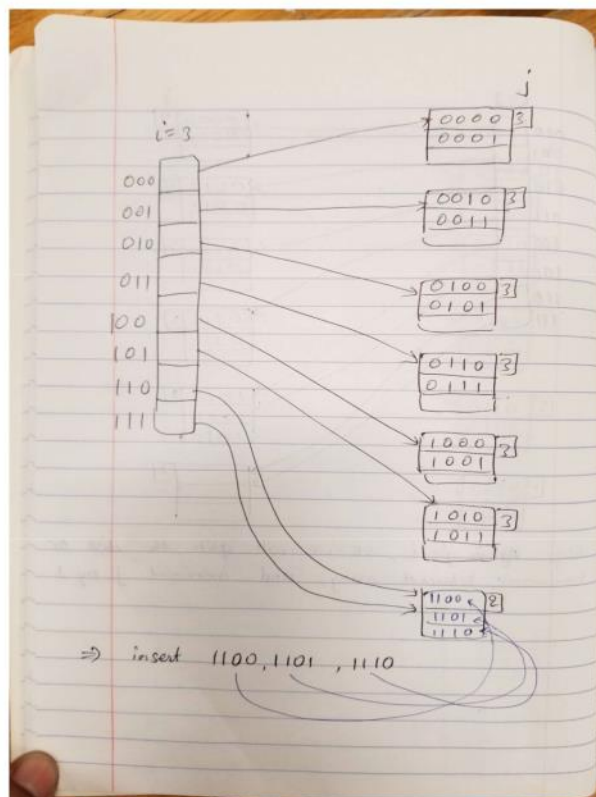 j
i=3
0000 3
0001
000
001
0010 3
0011
010
011
0100 3
0101
100
101
0110 3
0111
110
111
1000 3
1001
1010 3
1011
1100 2
1101
1110
⇒ insert 1100, 1101, 1110